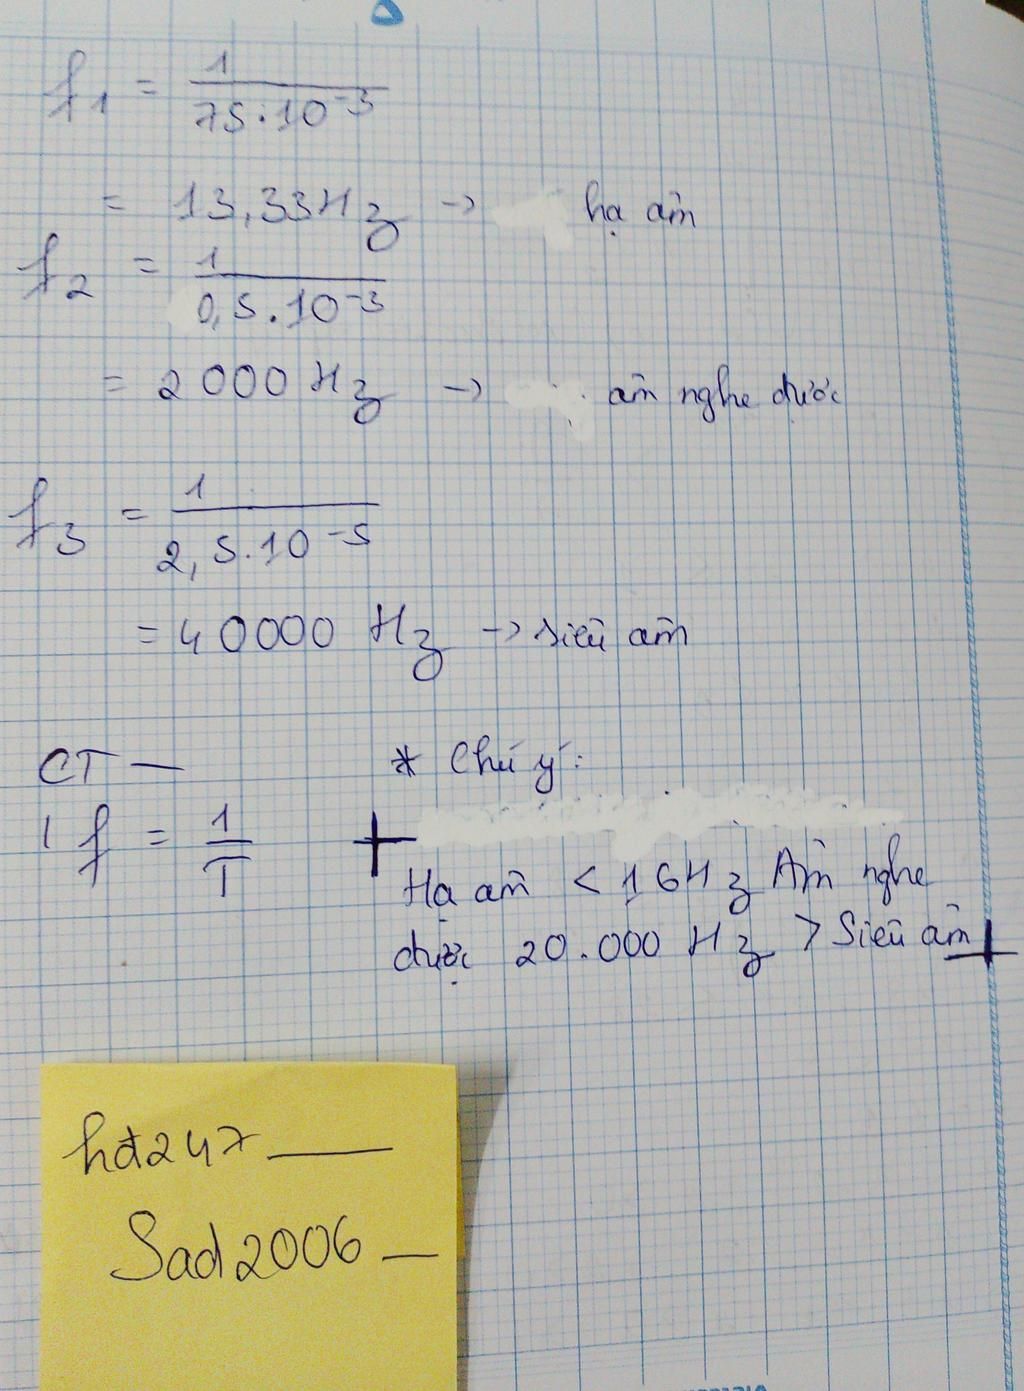 f1 = 1 / 75.10^-3
= 13,33Hz → hạ âm
f2 = 1 / 0,5.10^-3
= 2000 Hz → âm nghe được
f3 = 1 / 2,5.10^-5
= 40000 Hz → siêu âm
CT — * Chú ý:
f = 1 / T
+ Hạ âm < 16Hz Âm nghe
được 20.000 Hz > Siêu âm +
hđ247 —
Sad2006 —